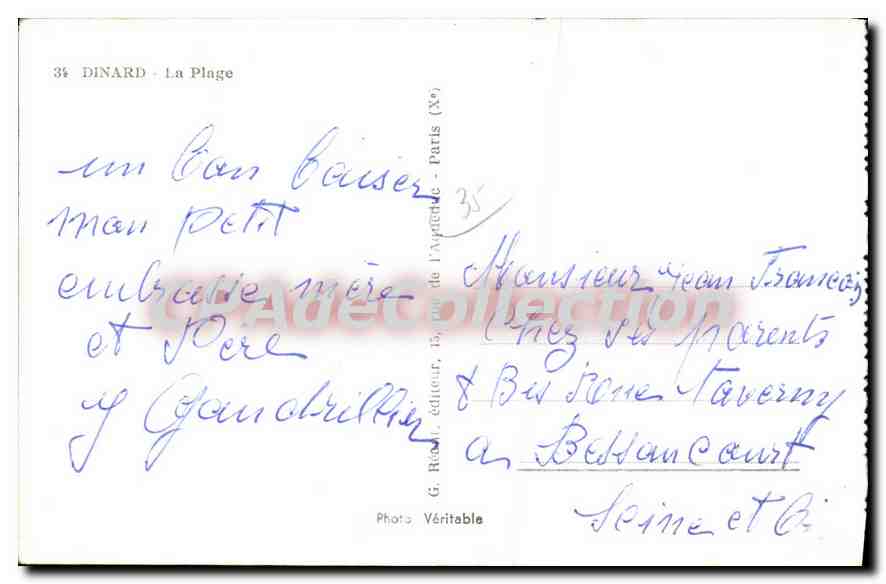 34 DINARD - La Plage
un bon baiser
mon petit
embrasse mère
et Père
y Gandrillier
G. Réant, éditeur, 15, rue de l'Aqueduc - Paris (Xe)
Photo Véritable
35
Monsieur jean Francois
Chez ses parents
8 Bis Rue Taverny
a Bessancourt
Seine et Oi
CPAdeCollection